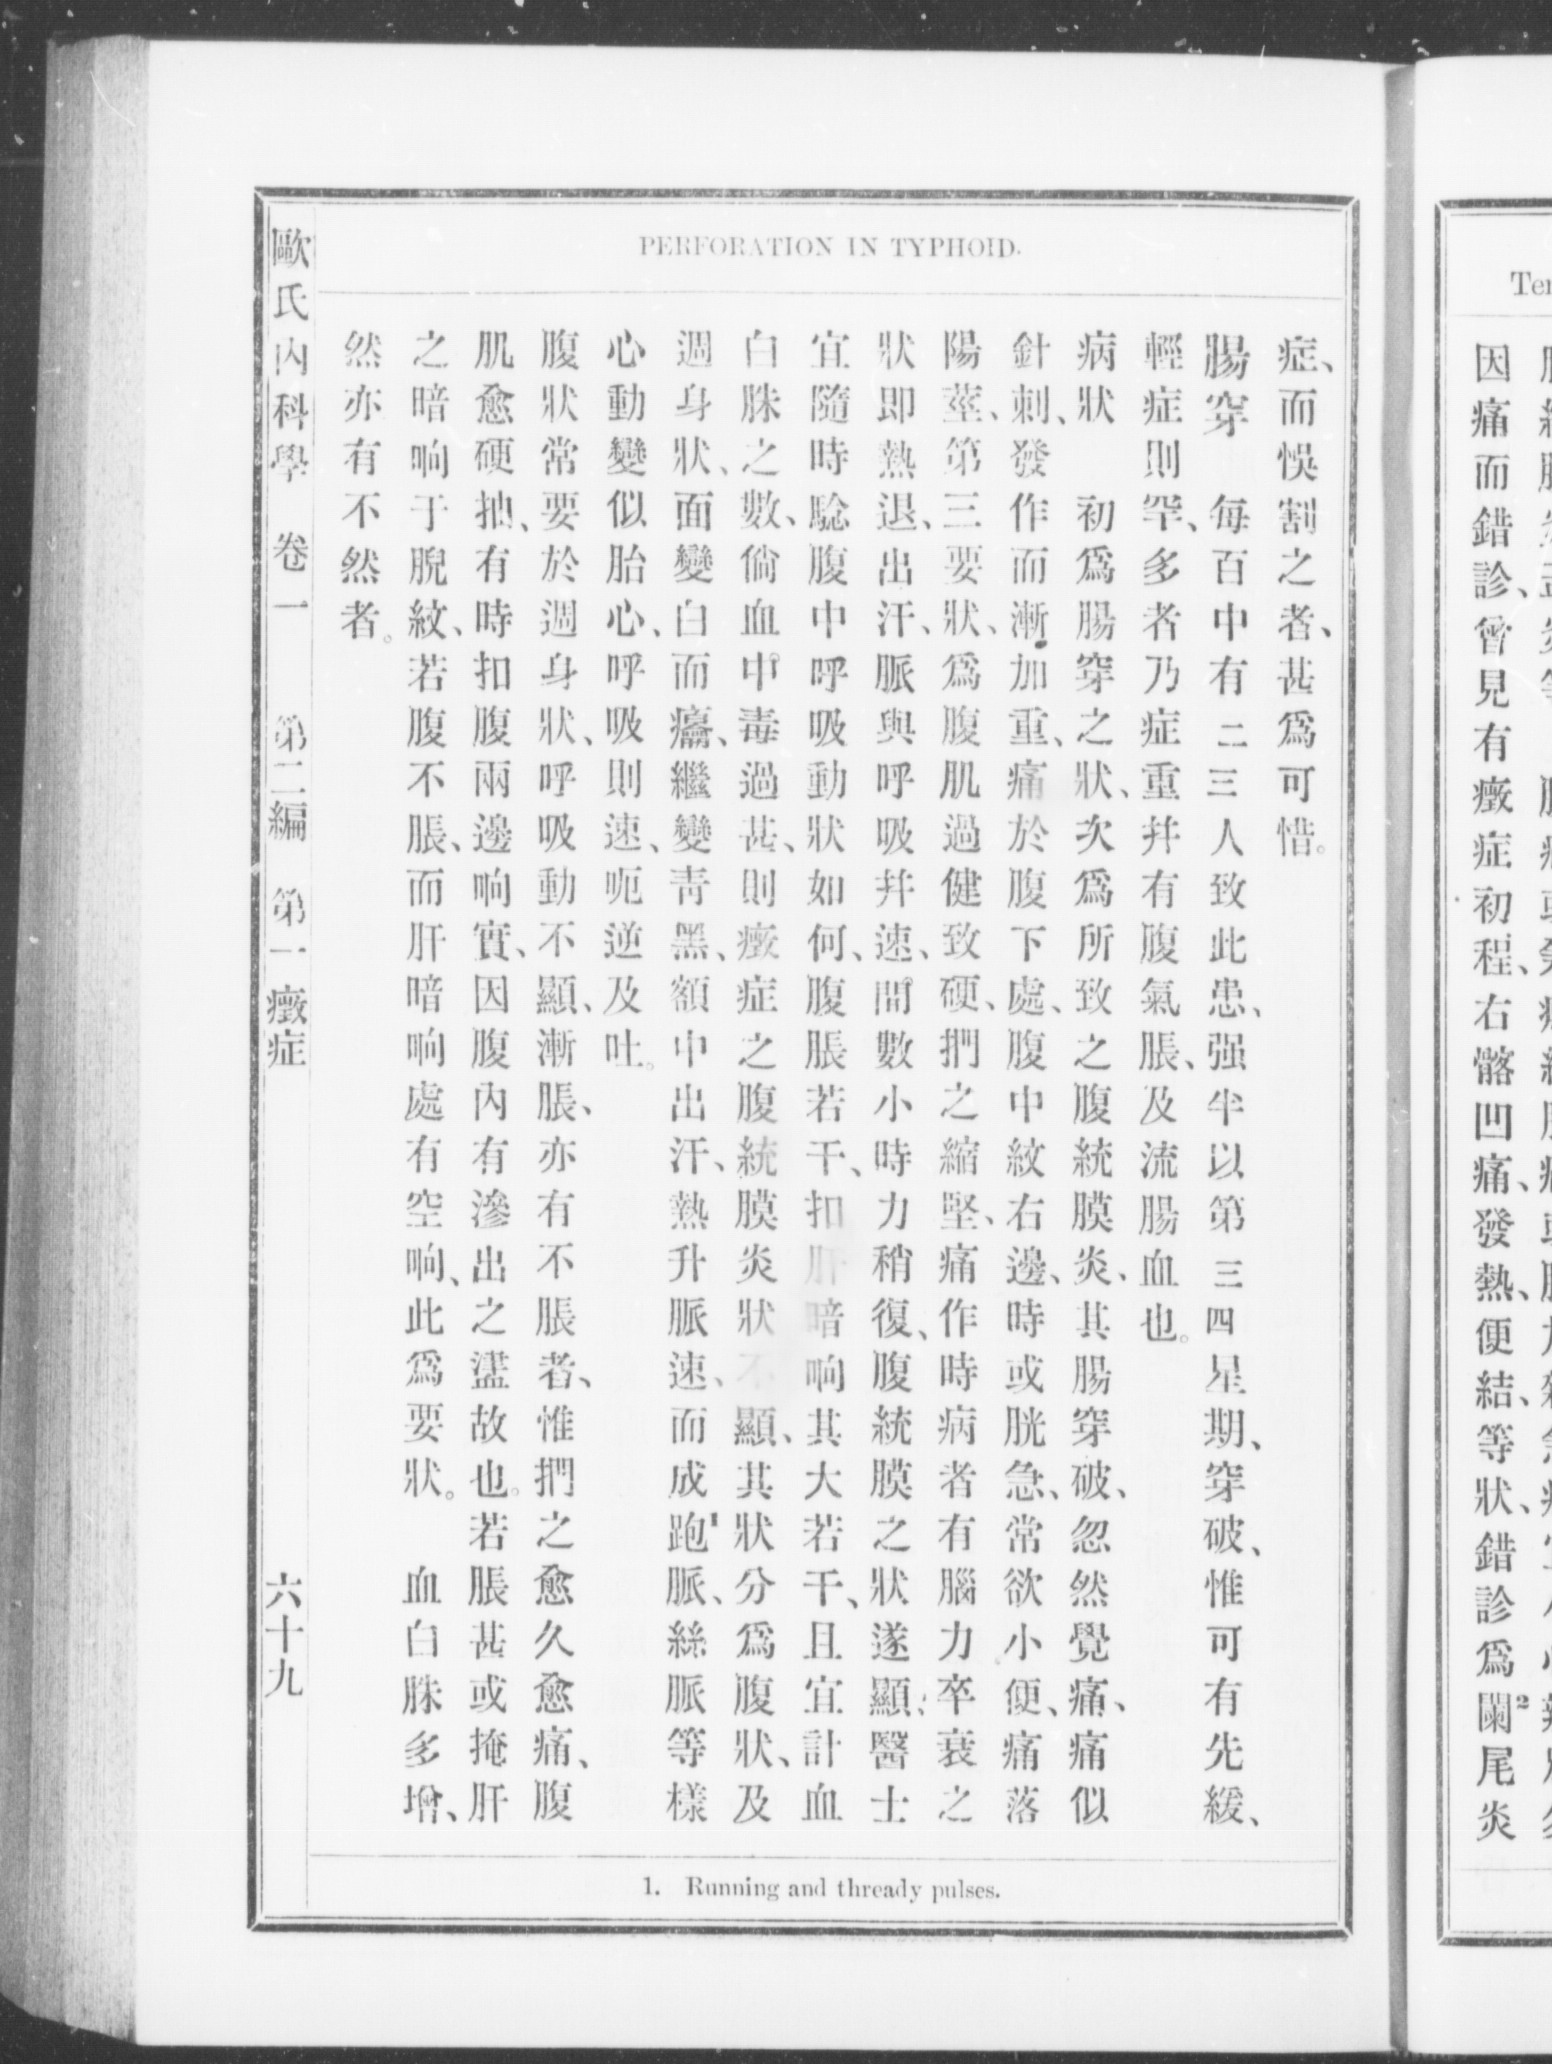 PERFORATION IN TYPHOID.
症、而悞割之者、甚爲可惜。
腸穿　每百中有二三人致此患、强半以第三四星期、穿破、惟可有先緩、
輕症則罕、多者乃症重幷有腹氣脹、及流腸血也。
病狀　初爲腸穿之狀、次爲所致之腹統膜炎、其腸穿破、忽然覺痛、痛似
針刺、發作而漸加重、痛於腹下處、腹中紋右邊、時或胱急、常欲小便、痛落
陽莖、第三要狀、爲腹肌過健致硬、捫之縮堅、痛作時病者有腦力卒衰之
狀即熱退、出汗、脈與呼吸幷速、間數小時力稍復、腹統膜之狀遂顯、醫士
宜隨時騐腹中呼吸動狀如何、腹脹若干、扣肝暗响其大若干、且宜計血
白脒之數、倘血中毒過甚、則癥症之腹統膜炎狀不顯、其狀分爲腹狀、及
週身狀、面變白而癟、繼變靑黑、額中出汗、熱升脈速、而成跑1脈、絲脈等樣
心動變似胎心、呼吸則速、呃逆及吐。
腹狀常要於週身狀、呼吸動不顯、漸脹、亦有不脹者、惟捫之愈久愈痛、腹
肌愈硬抽、有時扣腹兩邊响實、因腹內有滲出之盪故也。若脹甚或掩肝
之暗响于脫紋、若腹不脹、而肝暗响處有空响、此爲要狀。　血白脒多增、
然亦有不然者。
1. Running and thready pulses.
歐氏內科學　卷一　第二編　第一癥症　六十九
因痛而錯診、曾見有癥症初程、右髂凹痛、發熱、便結、等狀、錯診爲闌2尾炎